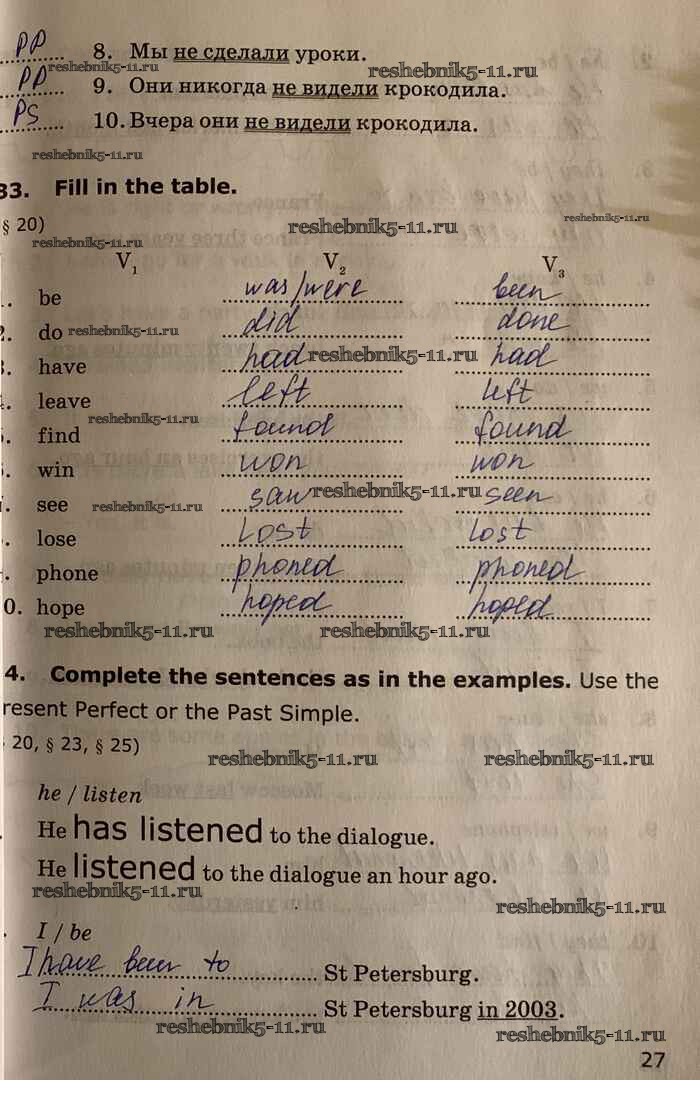 PP 8. Мы не сделали уроки.
reshebnik5-11.ru reshebnik5-11.ru
PP 9. Они никогда не видели крокодила.
PS 10. Вчера они не видели крокодила.
reshebnik5-11.ru
33. Fill in the table.
reshebnik5-11.ru
§ 20) reshebnik5-11.ru
reshebnik5-11.ru
V1 V2 V3
1. be was/were been
2. do reshebnik5-11.ru did done
3. have had reshebnik5-11.ru had
4. leave left left
reshebnik5-11.ru
5. find found found
6. win won won
7. see reshebnik5-11.ru saw reshebnik5-11.ru seen
. lose lost lost
. phone phoned phoned
0. hope hoped hoped
reshebnik5-11.ru reshebnik5-11.ru
4. Complete the sentences as in the examples. Use the
resent Perfect or the Past Simple.
20, § 23, § 25) reshebnik5-11.ru reshebnik5-11.ru
he / listen
He has listened to the dialogue.
He listened to the dialogue an hour ago.
reshebnik5-11.ru
reshebnik5-11.ru
I / be
I have been to St Petersburg.
I was in St Petersburg in 2003.
reshebnik5-11.ru reshebnik5-11.ru
27